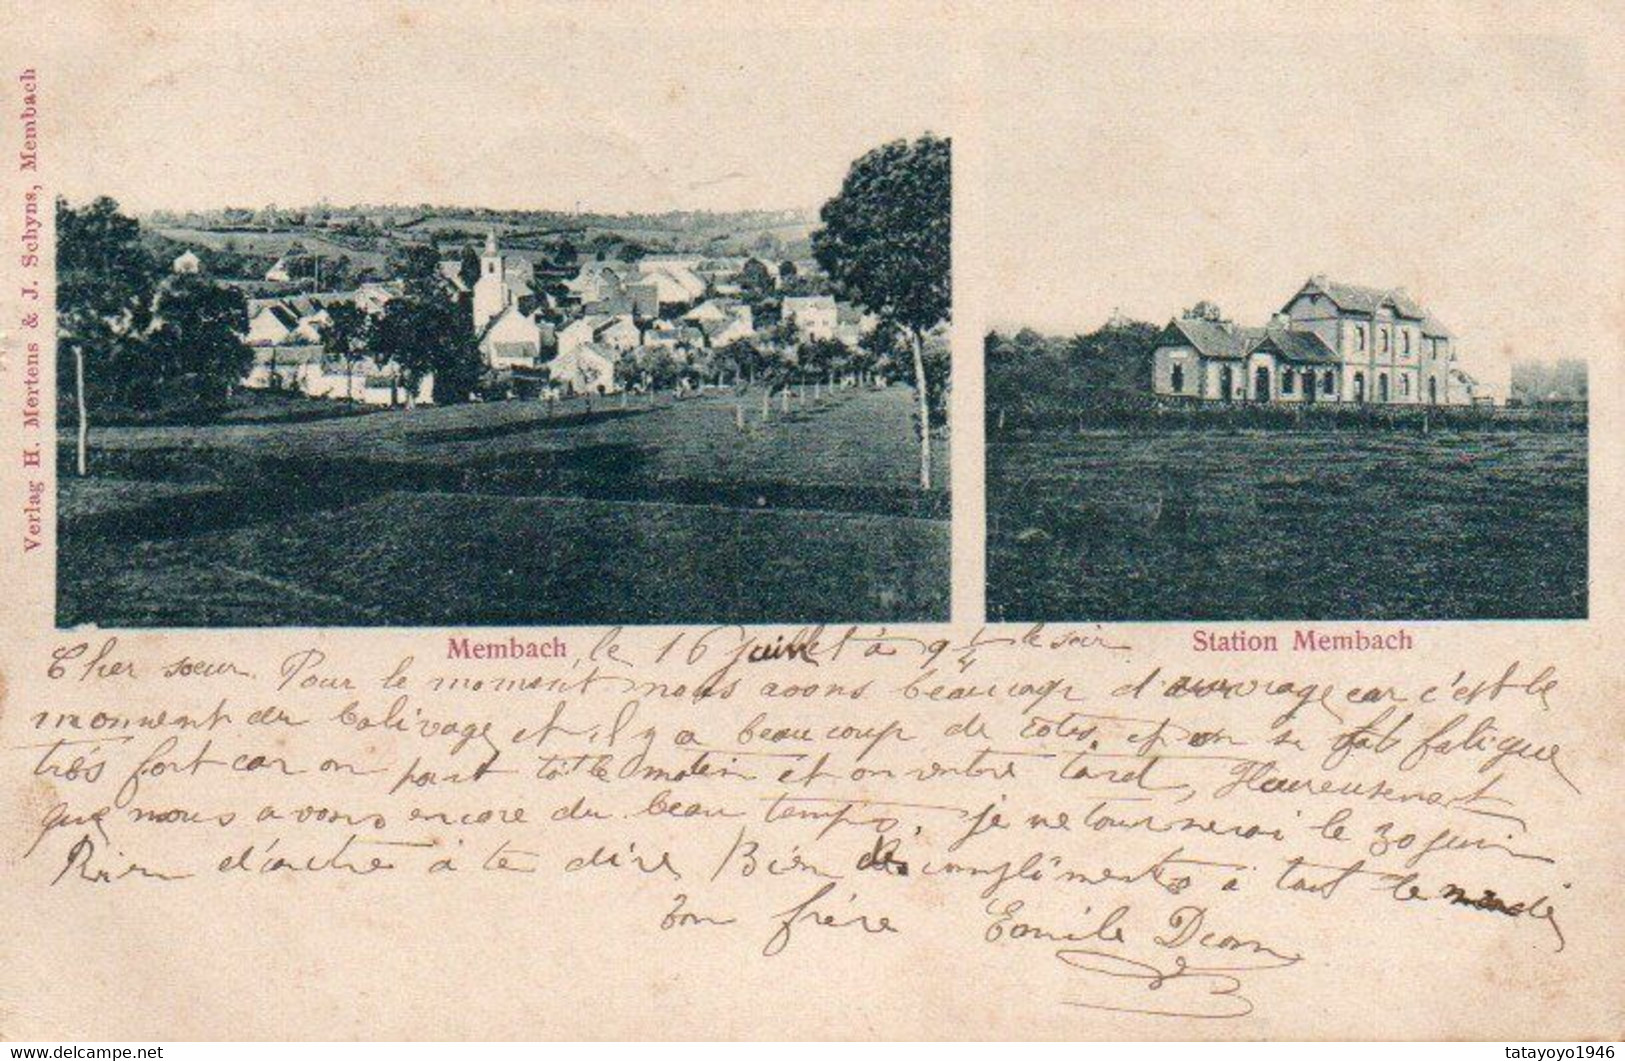 Verlag H. Mertens & J. Schyns, Membach
Membach
Station Membach
le 16 juillet à 9 1/4 le soir
Cher sœur. Pour le moment nous avons beaucoup d'ouvrage car c'est le
moment du balivage et il y a beaucoup de côtes et on se fatigue
très fort car on part tôt le matin et on rentre tard, Heureusement
que nous avons encore du beau temps. je ne tournerai le 30 juin
Rien d'autre à te dire Bien des compliments à tout le monde
Ton frère Emile
www.delcampe.net
tatayoyo1946